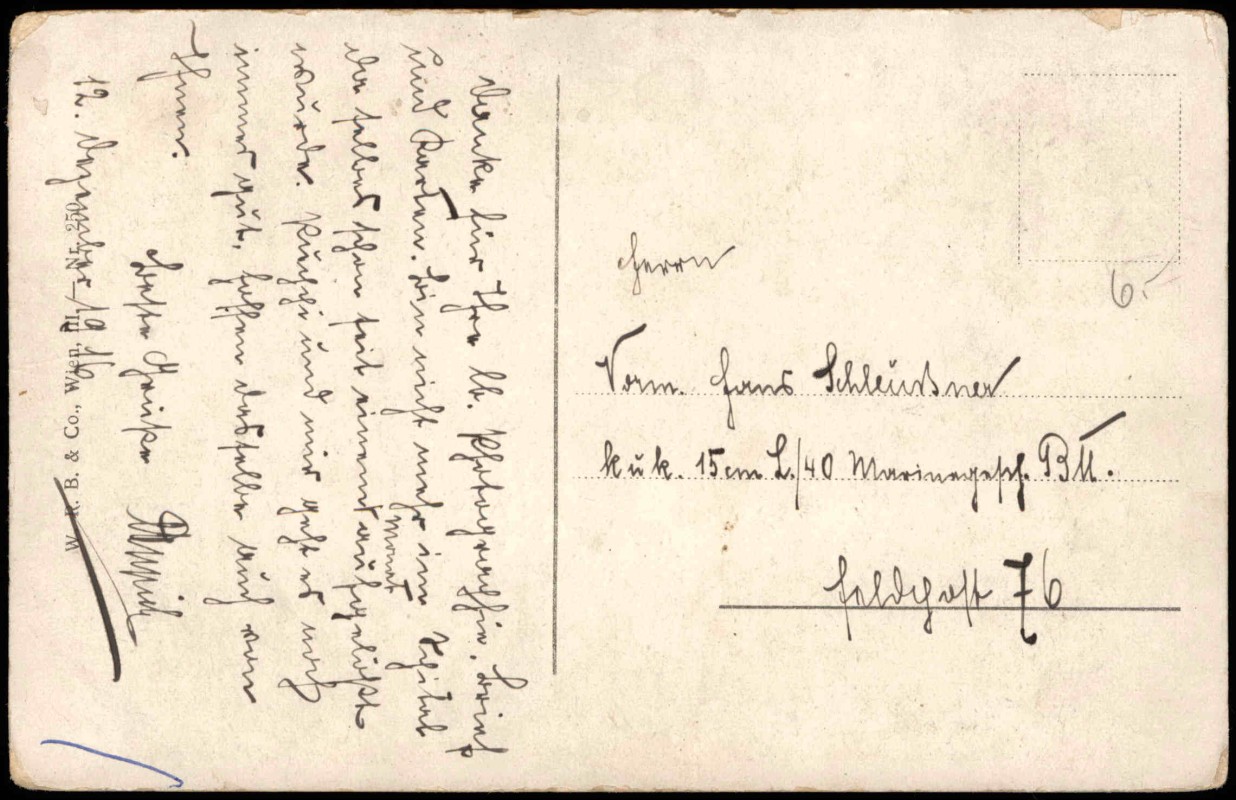 Danke für Ihre lb. Photographie, Brief
und Karten. Bin nicht mehr im Spital
da selbes schon seit einem Monat aufgelöst
wurde. und mir geht es noch
immer gut, hoffen dasselbe auch von
Ihnen.
Beste Grüße
12. Dezember 1916
W. R. B. & Co., Wien, III/ Nr. 259
Herrn
Vorm. Hans Schleussner
k u k. 15 cm L./40 Marinegesch. Btt.
Feldpost 76
6.-